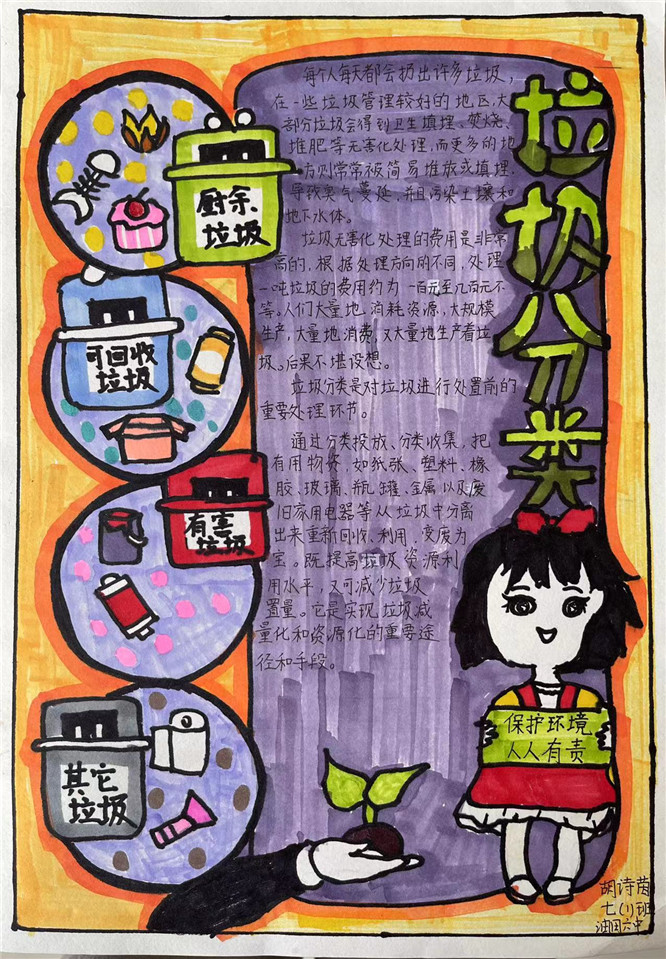 垃圾分类
每个人每天都会扔出许多垃圾，
在一些垃圾管理较好的地区，大
部分垃圾会得到卫生填埋、焚烧、
堆肥等无害化处理，而更多的地
方则常常被简易堆放或填埋，
导致臭气蔓延，并且污染土壤和
地下水体。
垃圾无害化处理的费用是非常
高的，根据处理方向的不同，处理
一吨垃圾的费用约为一百元至几百元不
等。人们大量地消耗资源，大规模
生产，大量地消费，又大量地生产着垃
圾。后果不堪设想。
垃圾分类是对垃圾进行处置前的
重要处理环节。
通过分类投放、分类收集，把
有用物资，如纸张、塑料、橡
胶、玻璃、瓶罐、金属以及废
旧家用电器等从垃圾中分离
出来重新回收、利用，变废为
宝。既提高垃圾资源利
用水平，又可减少垃圾
置量。它是实现垃圾减
量化和资源化的重要途
径和手段。
厨余
垃圾
可回收
垃圾
有害
垃圾
其它
垃圾
保护环境
人人有责
胡诗茵
七(1)班
油田六中